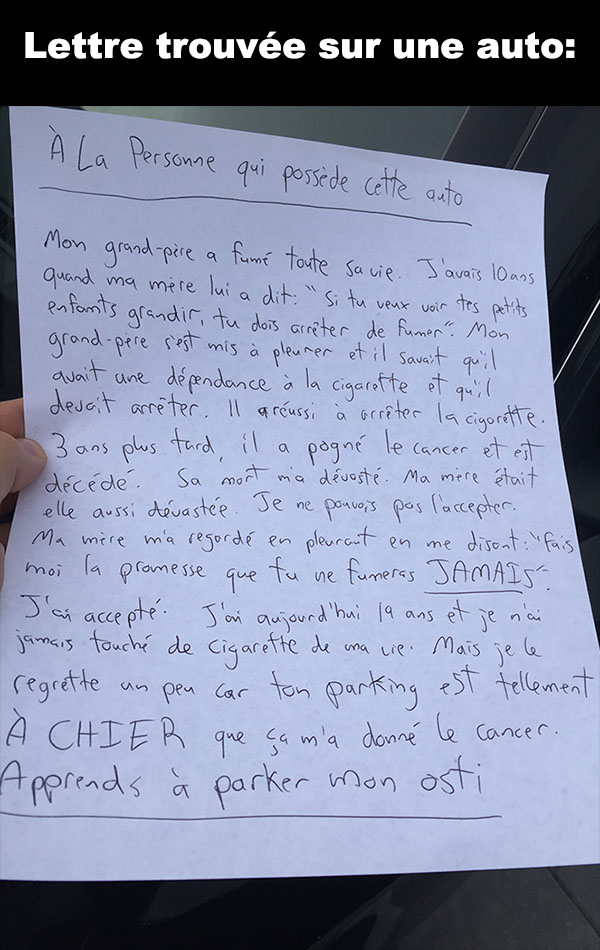 Lettre trouvée sur une auto:
À La Personne qui possède cette auto
Mon grand-père a fumé toute sa vie. J'avais 10 ans
quand ma mère lui a dit: "Si tu veux voir tes petits
enfants grandir, tu dois arrêter de fumer". Mon
grand-père s'est mis à pleurer et il savait qu'il
avait une dépendance à la cigarette et qu'il
devait arrêter. Il a réussi à arrêter la cigarette.
3 ans plus tard, il a pogné le cancer et est
décédé. Sa mort m'a dévasté. Ma mère était
elle aussi dévastée. Je ne pouvais pas l'accepter.
Ma mère m'a regardé en pleurant en me disant: "Fais
moi la promesse que tu ne fumeras JAMAIS".
J'ai accepté. J'ai aujourd'hui 19 ans et je n'ai
jamais touché de cigarette de ma vie. Mais je le
regrette un peu car ton parking est tellement
À CHIER que ça m'a donné le cancer.
Apprends à parker mon osti